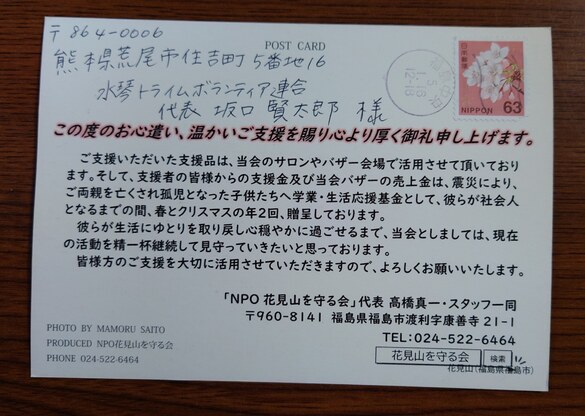 〒864-0006
POST CARD
熊本県荒尾市住吉町5番地16
水琴トライムボランティア連合
代表 坂口 賢太郎 様
日本郵便
NIPPON 63
この度のお心遣い、温かいご支援を賜り心より厚く御礼申し上げます。
ご支援いただいた支援品は、当会のサロンやバザー会場で活用させて頂いており
ます。そして、支援者の皆様からの支援金及び当会バザーの売上金は、震災により、
ご両親を亡くされ孤児となった子供たちへ学業・生活応援基金として、彼らが社会人
となるまでの間、春とクリスマスの年2回、贈呈しております。
彼らが生活にゆとりを取り戻し心穏やかに過ごせるまで、当会としましては、現在
の活動を精一杯継続して見守っていきたいと思っております。
皆様方のご支援を大切に活用させていただきますので、よろしくお願いいたします。
「NPO 花見山を守る会」代表 高橋真一・スタッフ一同
〒960-8141 福島県福島市渡利字康善寺 21-1
TEL:024-522-6464
花見山を守る会 検索
花見山(福島県福島市)
PHOTO BY MAMORU SAITO
PRODUCED NPO花見山を守る会
PHONE 024-522-6464